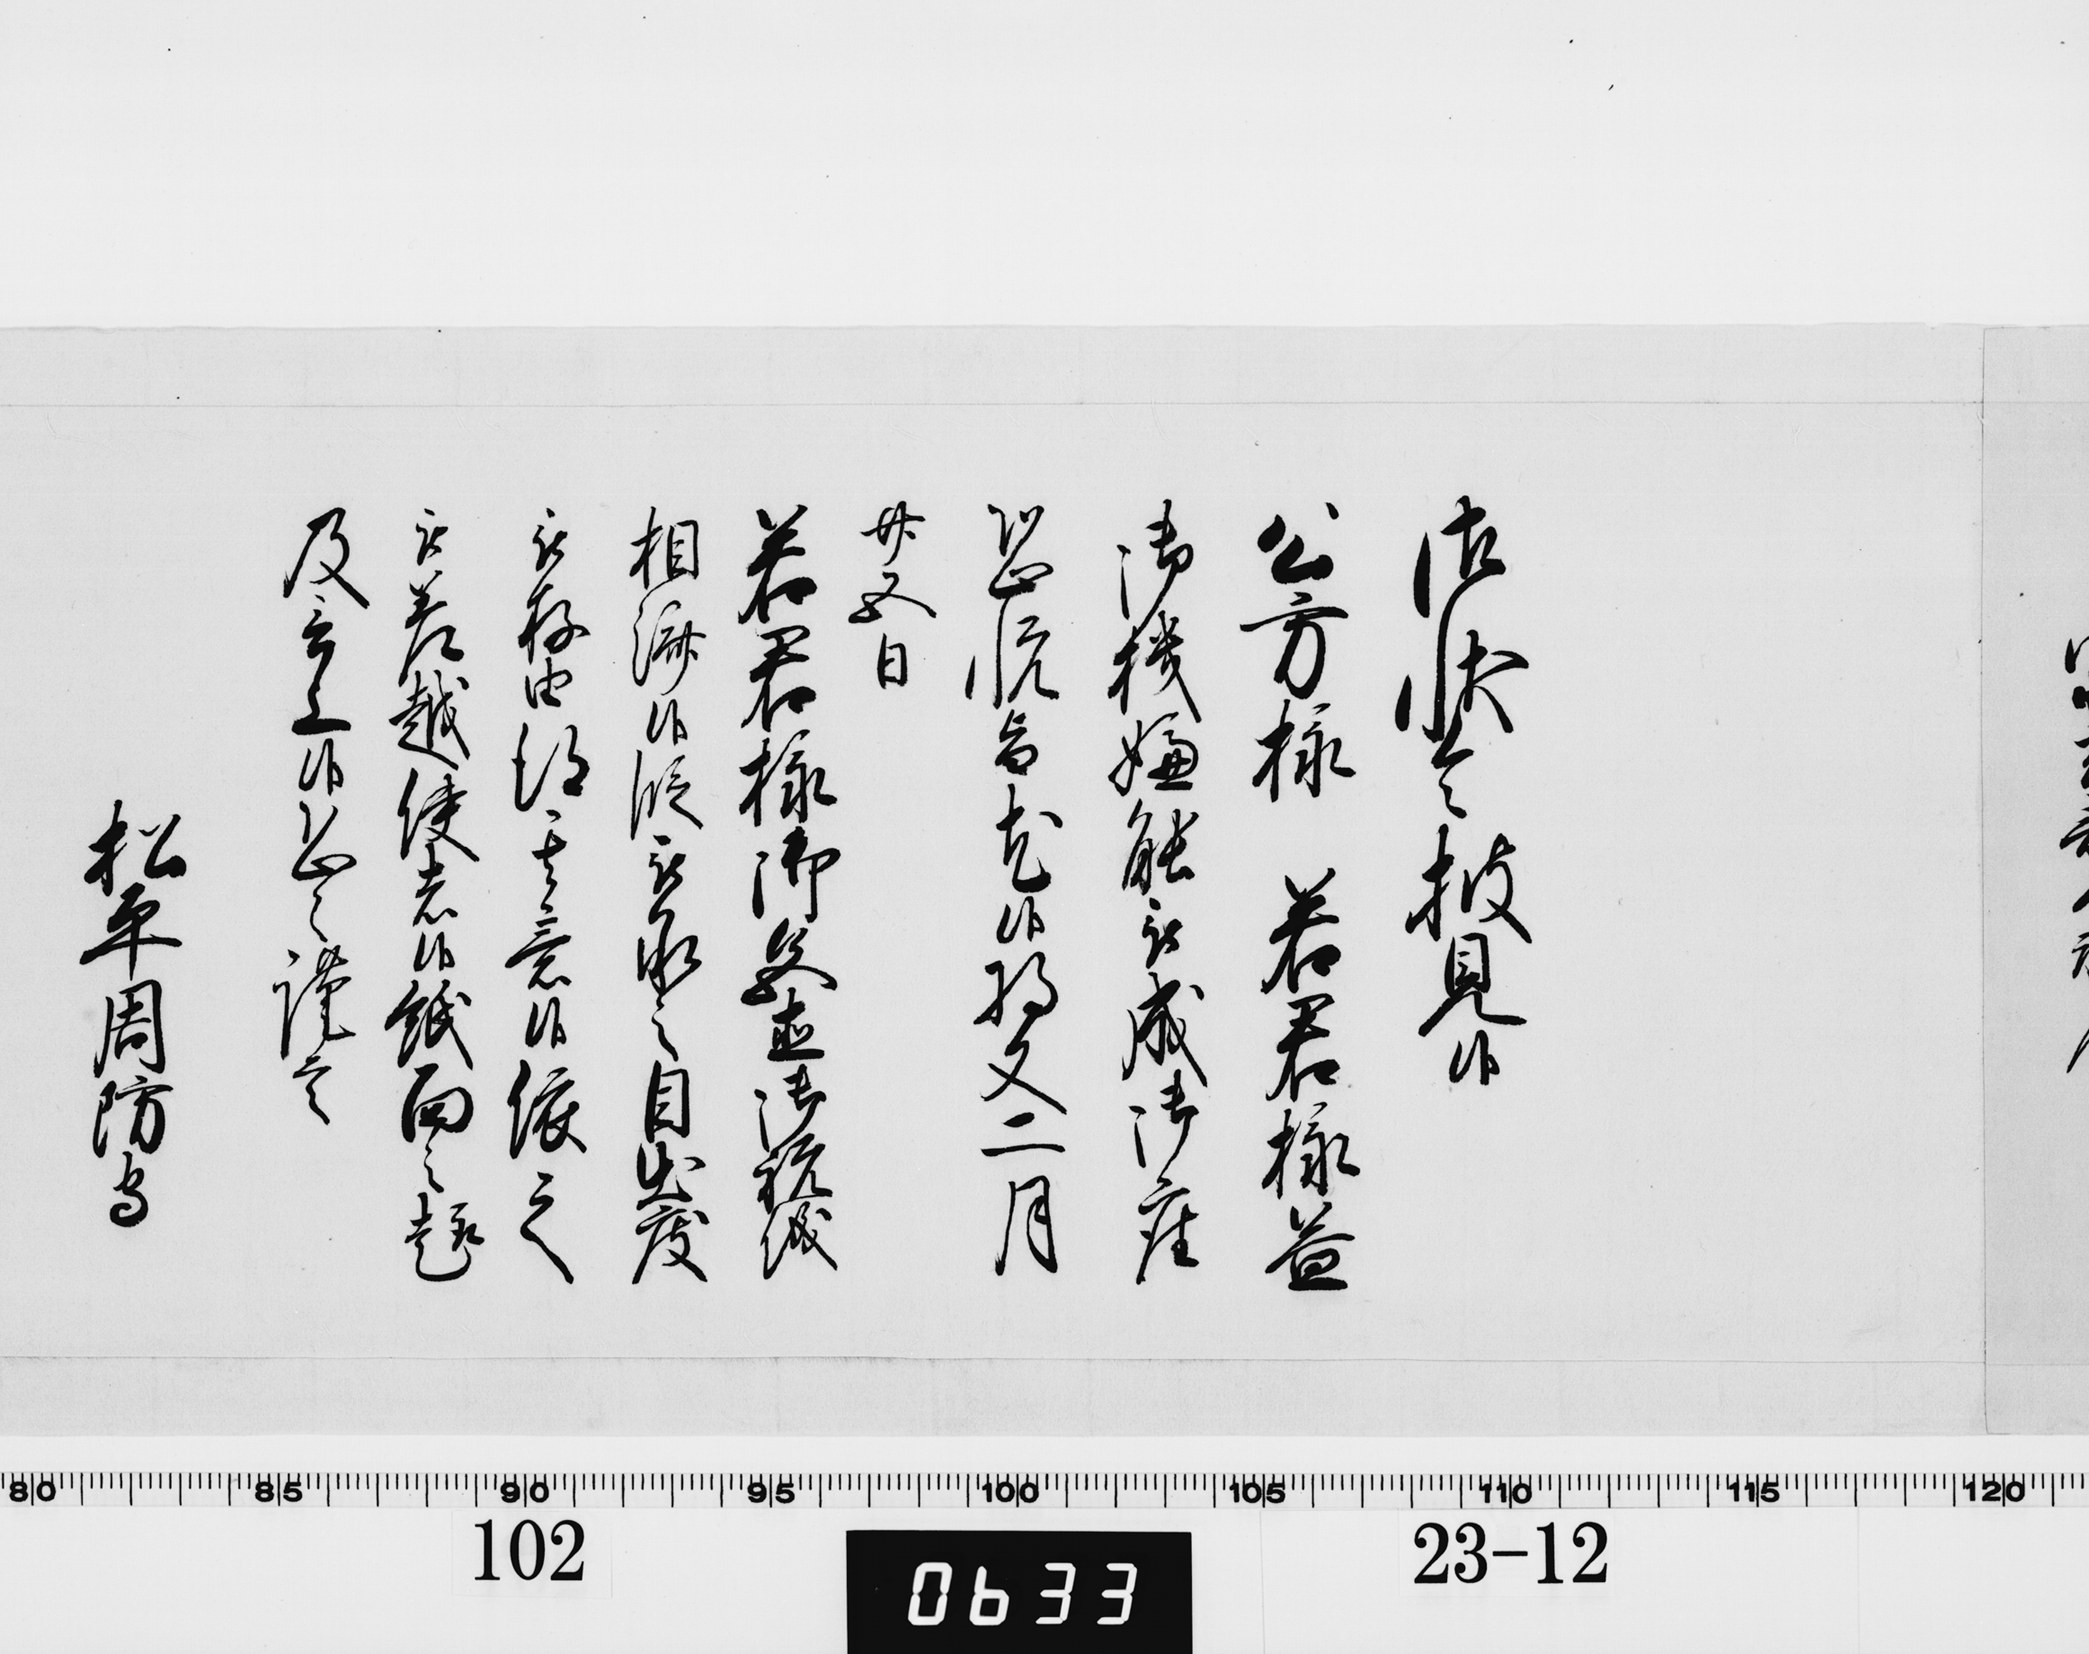 御状令披見候
公方様 若君様益
御機嫌能被成御座
恐悦旨尤候将又二月
廿五日
若君様御髪置御祝儀
相済候段被承之目出度
被存由得其意候依之
被差越使者候紙面之趣
及言上候恐々謹言
松平周防守
80 85 90 95 100 105 110 115 120
102
0633
23-12